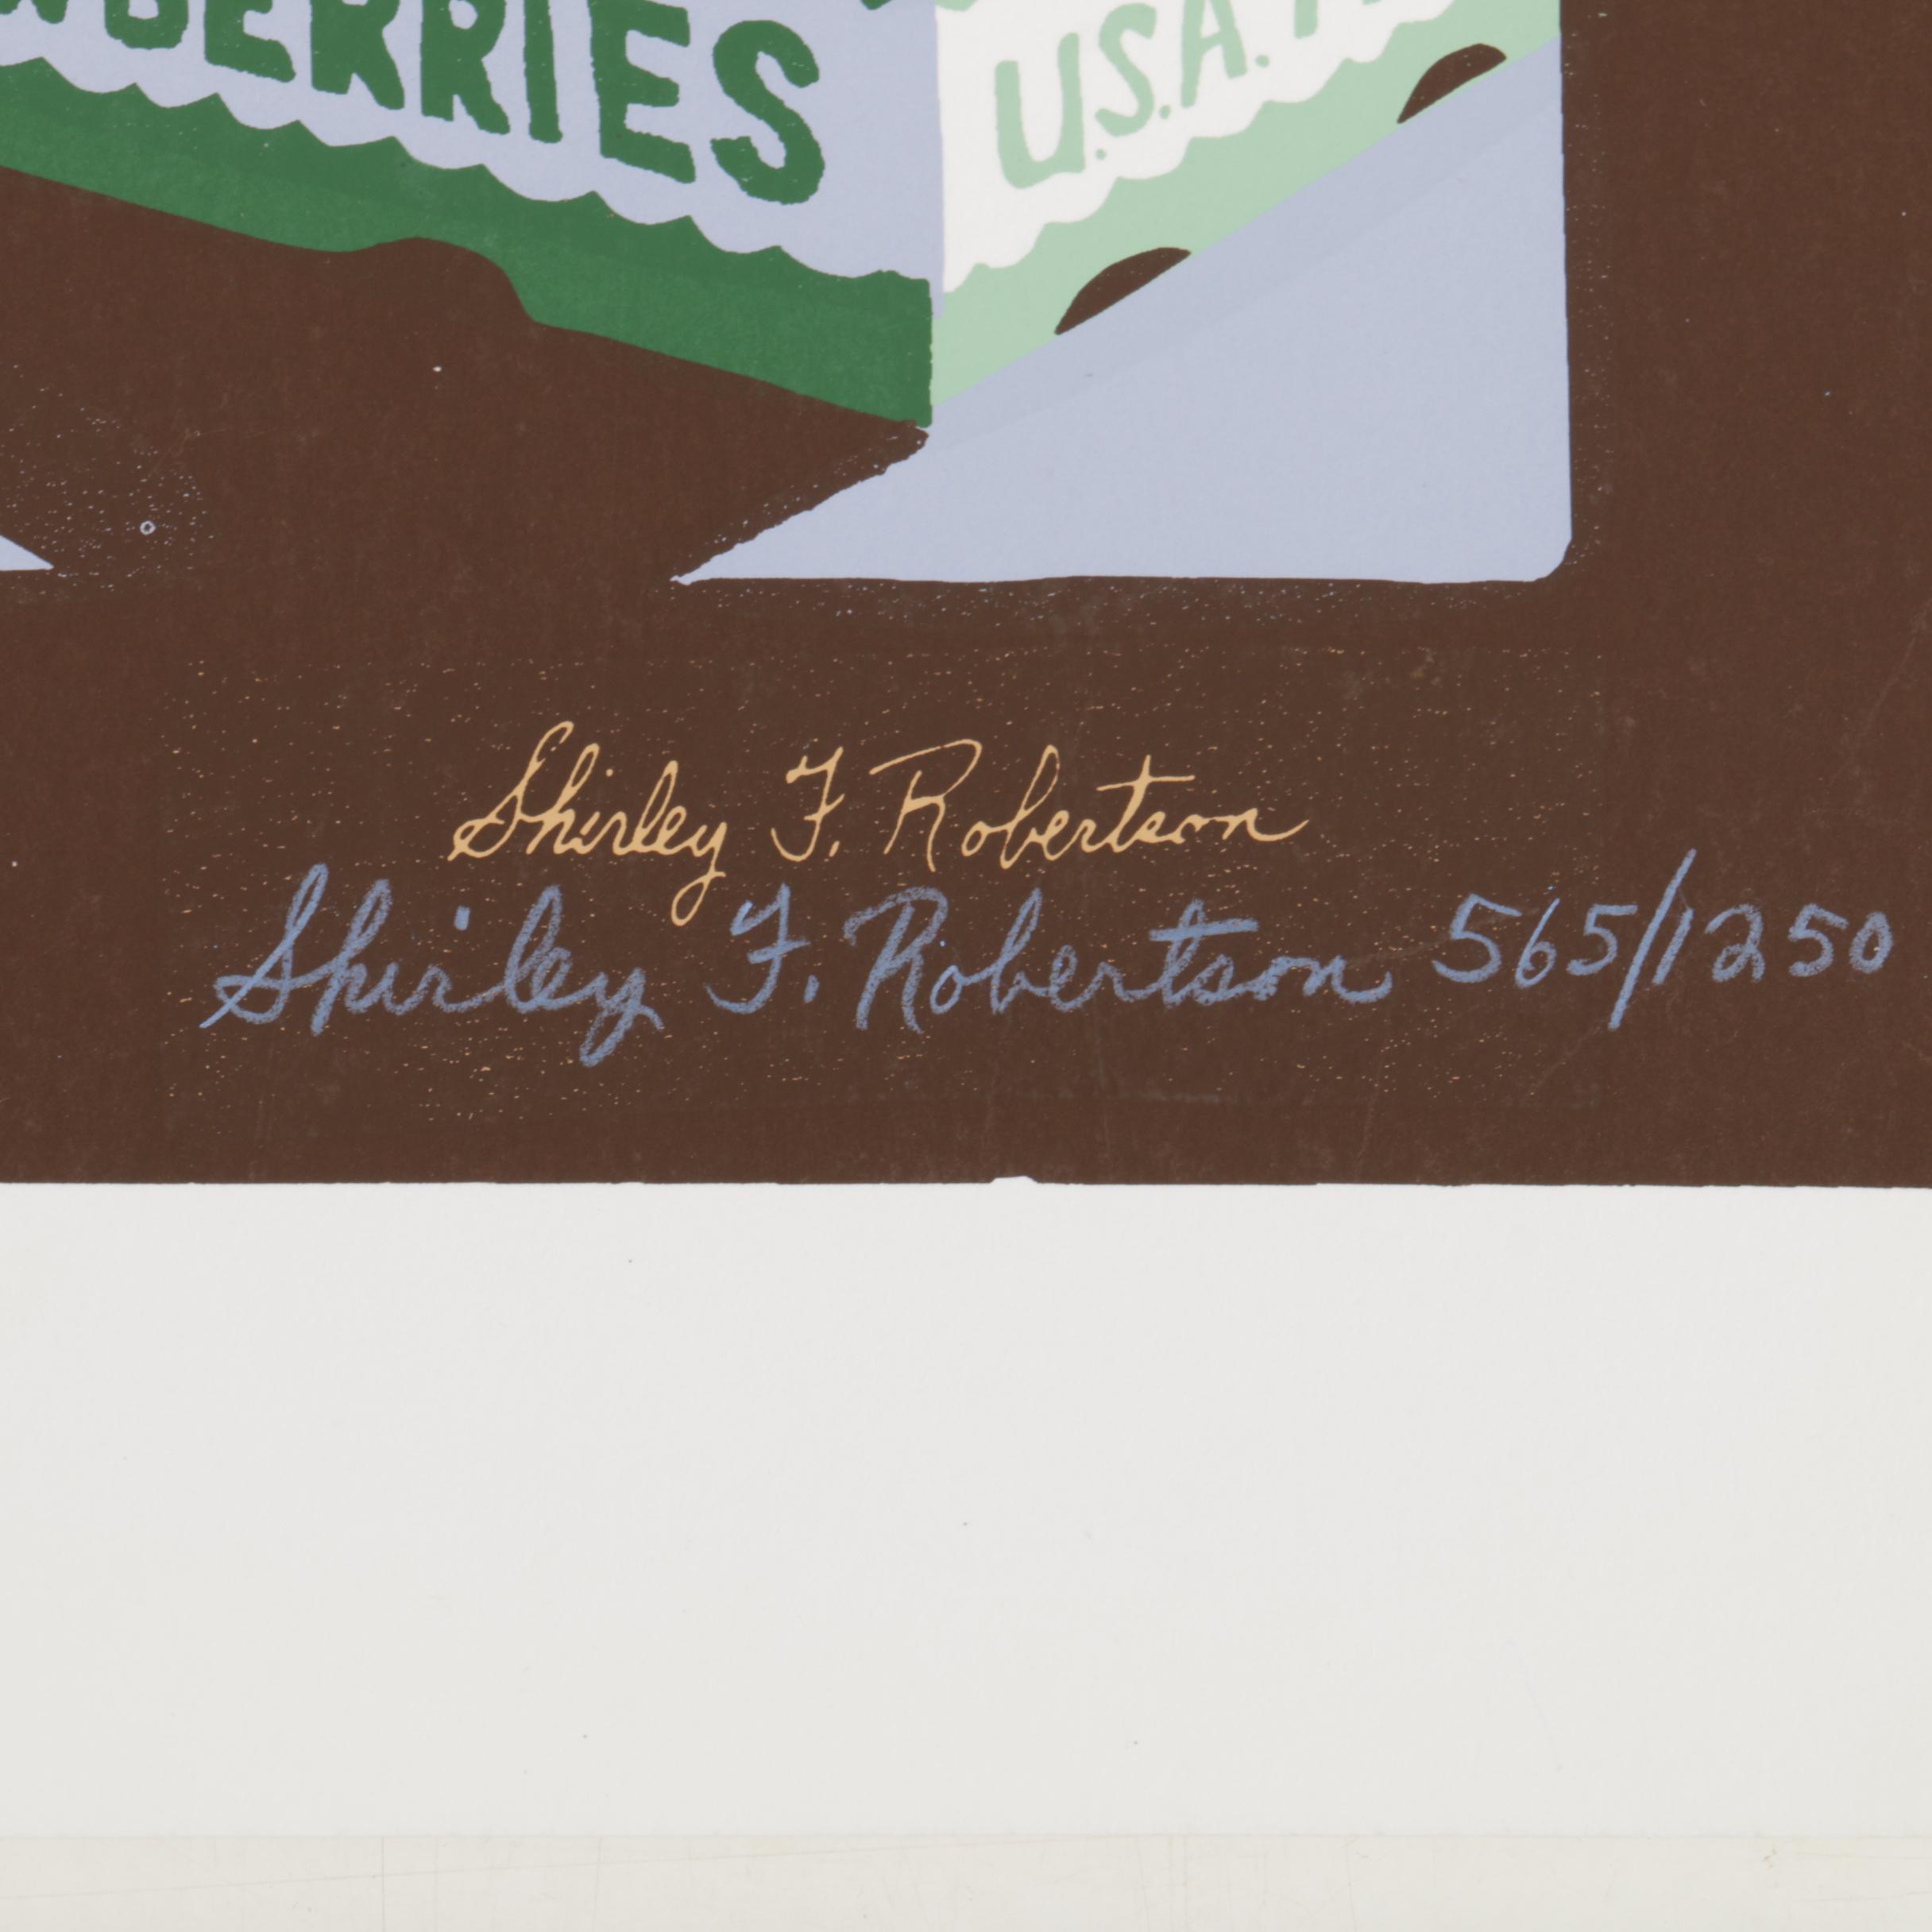 WBERRIES
U.S.A.
Shirley F. Robertson
Shirley F. Robertson 565/1250